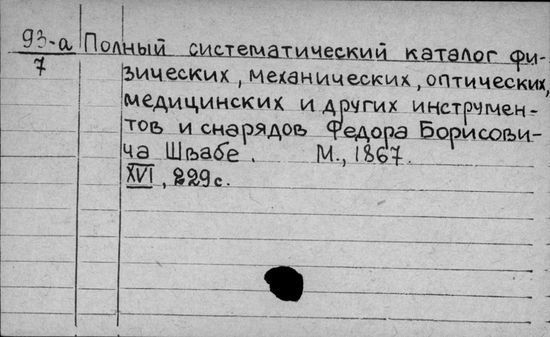 93-а Полный систематический каталог фи-
7 зических, механических, оптических,
медицинских и других инструмен-
тов и снарядов Федора Борисови-
ча Швабе. М., 1867.
XVI, 229с.